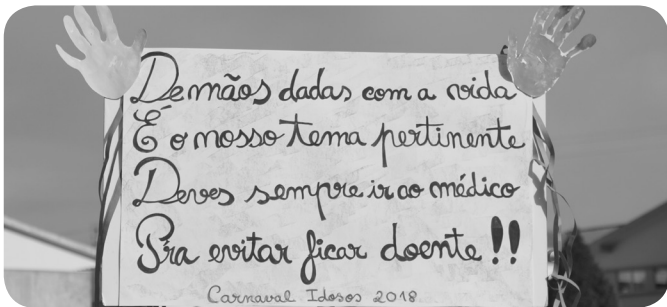 De mãos dadas com a vida
É o nosso tema pertinente
Deves sempre ir ao médico
Pra evitar ficar doente!!
Carnaval Idosos 2018